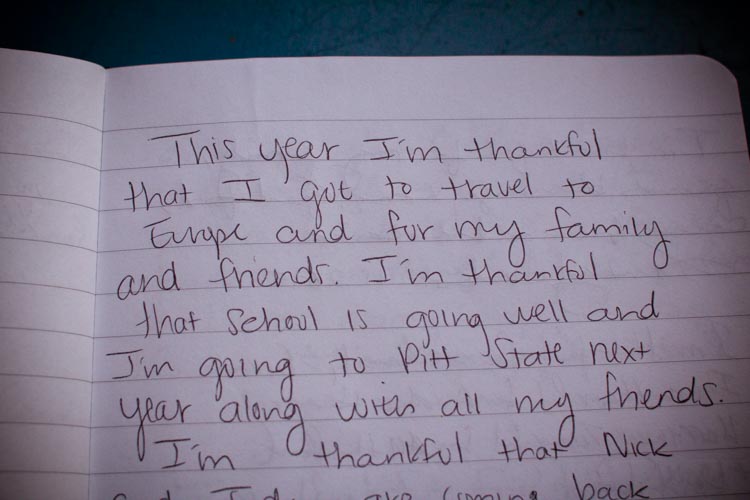 This year I'm thankful
that I got to travel to
Europe and for my family
and friends. I'm thankful
that school is going well and
I'm going to Pitt State next
year along with all my friends.
I'm thankful that Nick
are coming back